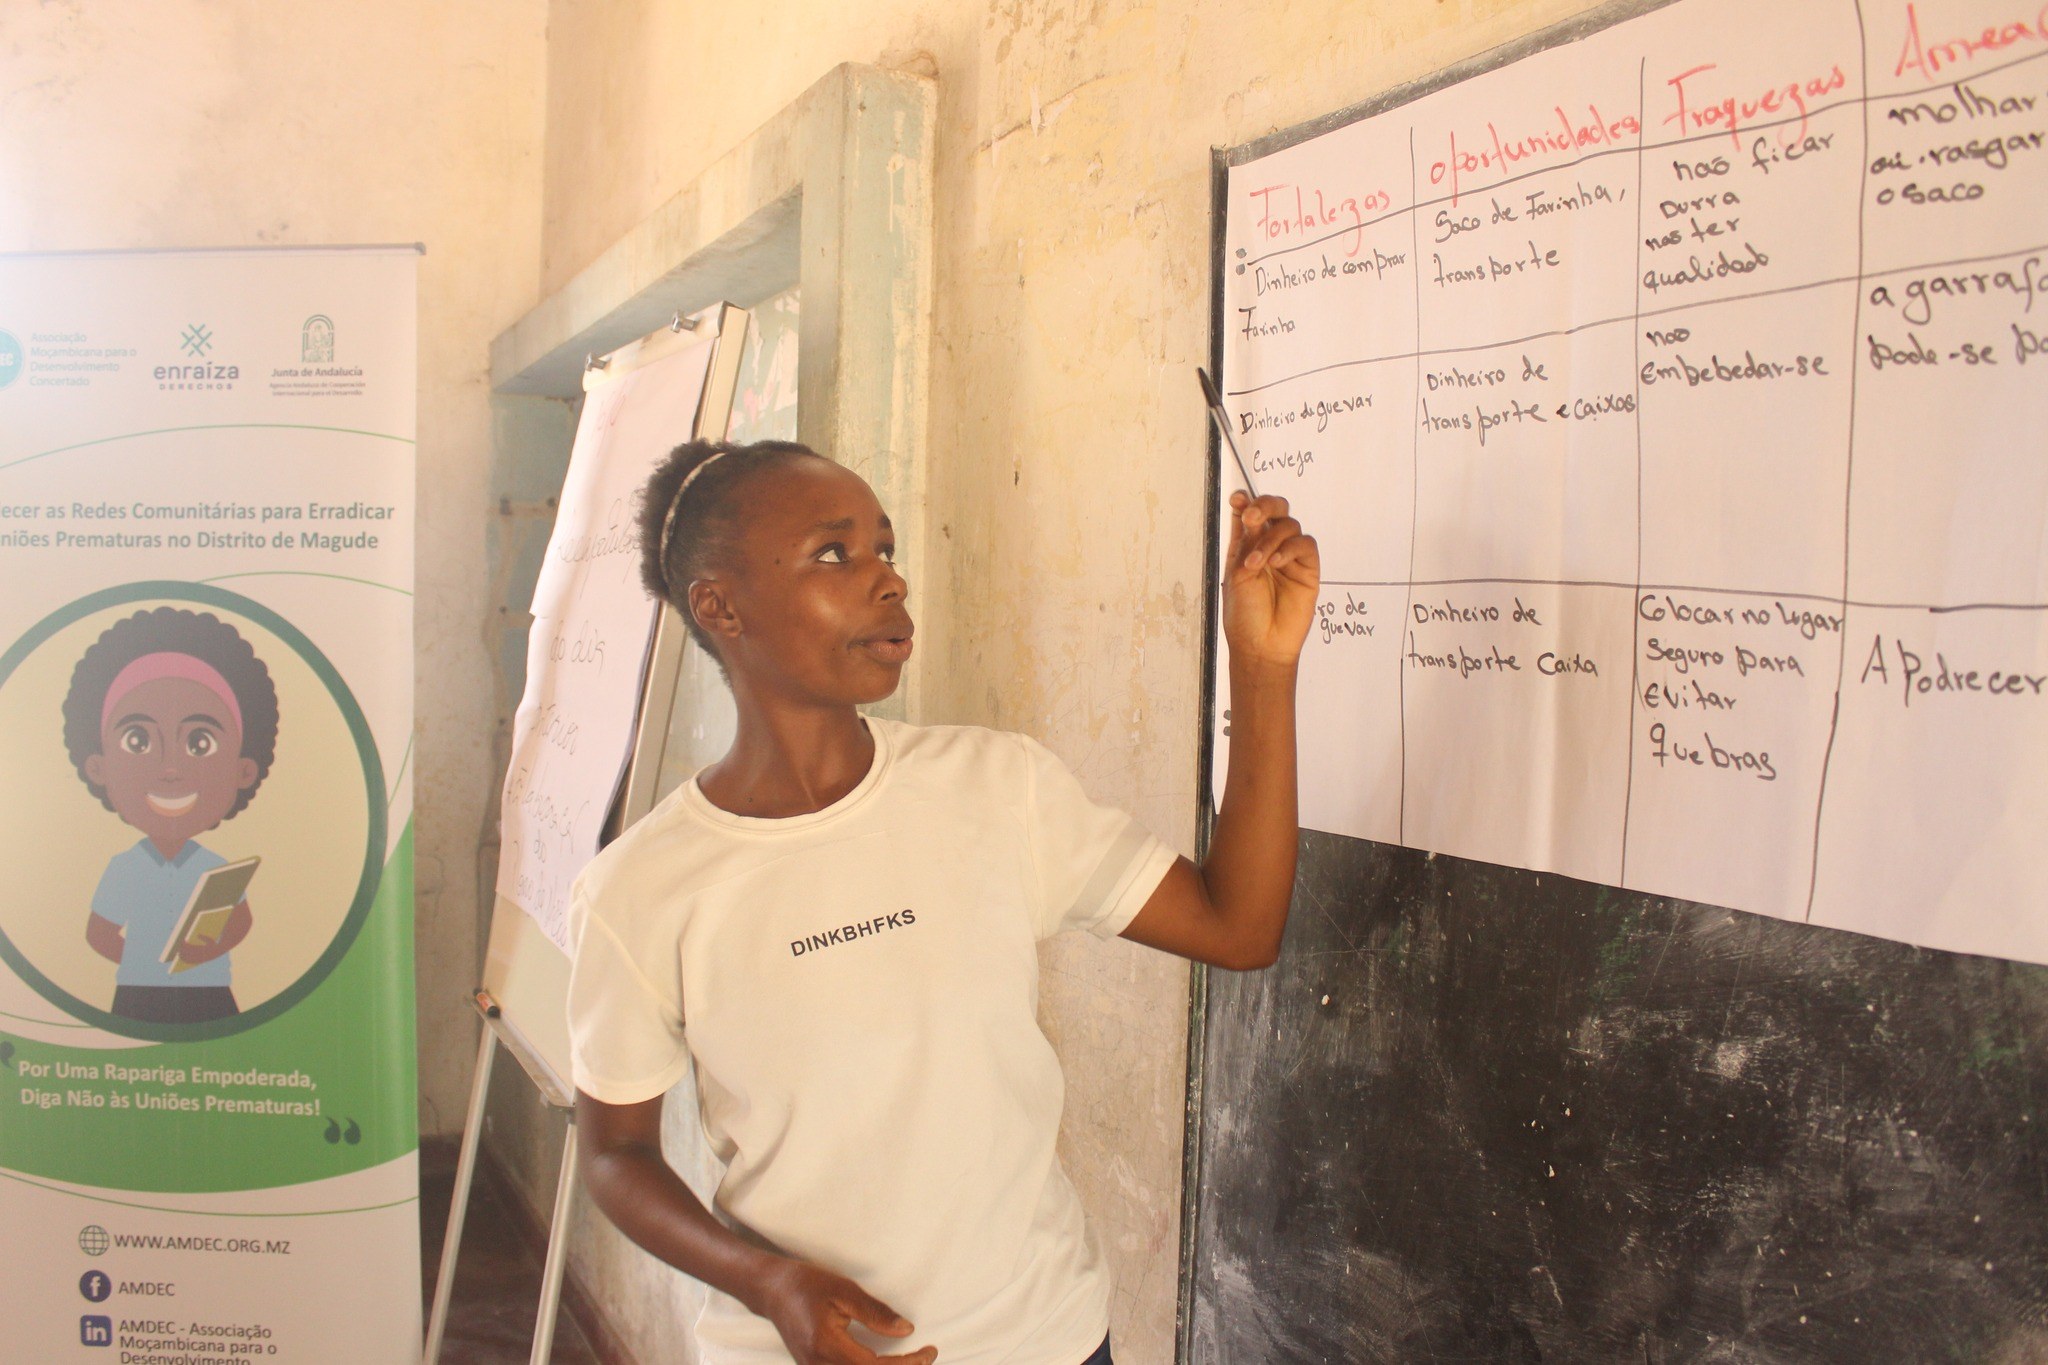 Associação
Moçambicana para o
Desenvolvimento
Concertado
enraíza
DERECHOS
Junta de Andalucía
Agencia Andaluza de Cooperación
Internacional para el Desarrollo
ecer as Redes Comunitárias para Erradicar
niões Prematuras no Distrito de Magude
Por Uma Rapariga Empoderada,
Diga Não às Uniões Prematuras!
WWW.AMDEC.ORG.MZ
AMDEC
AMDEC - Associação
Moçambicana para o
Desenvolvimento
do dia
DINKBHFKS
Fortalezas
oportunidades
Fraquezas
Dinheiro de comprar
Farinha
Saco de Farinha,
transporte
nao ficar
Durra
nao ter
qualidade
molhar
ou rasgar
o saco
Dinheiro de guevar
Cerveja
Dinheiro de
transporte e caixas
nao
Embebedar-se
a garrafa
Pode-se
ro de
guevar
Dinheiro de
transporte Caixa
Colocar no lugar
Seguro para
Evitar
quebras
A Podrecer